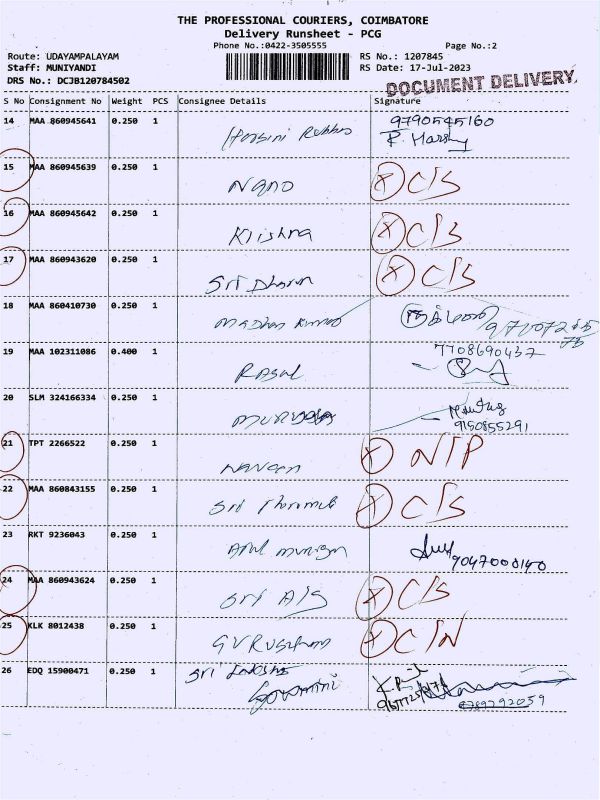 THE PROFESSIONAL COURIERS, COIMBATORE
Delivery Runsheet - PCG
Phone No.:0422-3505555
Page No.:2
Route: UDAYAMPALAYAM
RS No.: 1207845
Staff: MUNIYANDI
RS Date: 17-Jul-2023
DRS No.: DCJB120784502
DOCUMENT DELIVERY.
S No Consignment No Weight PCS Consignee Details Signature
14 MAA 860945641 0.250 1 9790545160
15 MAA 860945639 0.250 1 Nano X C/S
16 MAA 860945642 0.250 1 Krishna X C/S
17 MAA 860943620 0.250 1 Sri Dharan X C/S
18 MAA 860410730 0.250 1 Madhan Kumar
19 MAA 102311086 0.400 1 7708690437
20 SLM 324166334 0.250 1 9150855291
21 TPT 2266522 0.250 1 Naveen X N/P
22 MAA 860843155 0.250 1 Sri X C/S
23 RKT 9236043 0.250 1 Arul Murugan 9047000140
24 MAA 860943624 0.250 1 Sri A/S X C/S
25 KLK 8012438 0.250 1 X C/N
26 EDQ 15900471 0.250 1 Sri